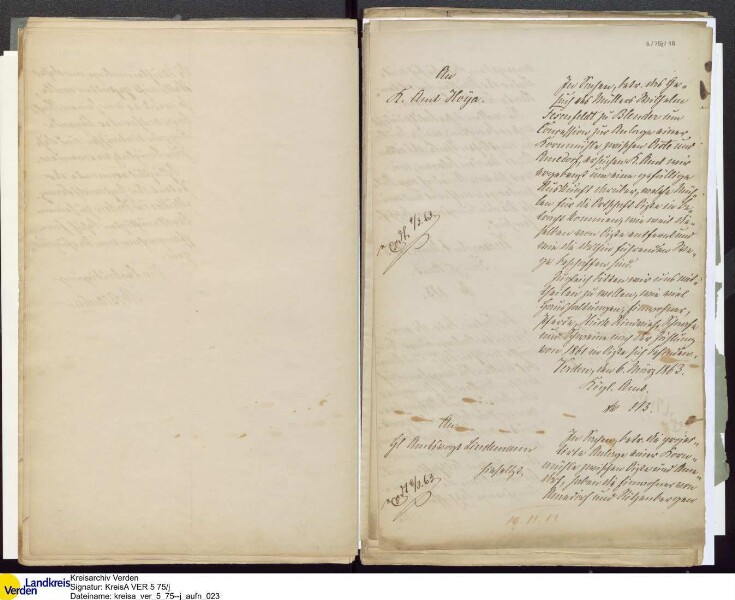 An
K. Amt Hoya.
In Sachen, betr. das Ge-
such des Müllers Wilhelm
zu Blender um
Concession zur Anlage einer
Kornmühle zwischen Oiste und
Amedorf, ersuchen K. Amt wir
ergebenst um eine gefällige
Auskunft darüber, welche Müh-
len für die Ortschaft Oiste in Be-
tracht kommen, wie weit die-
selben von Oiste entfernt und
wie die dahin führenden We-
ge beschaffen sind.
Zugleich bitten wir uns mit-
theilen zu wollen, wie viel
Haushaltungen, Einwohner,
Pferde, Stück Rindvieh, Schaafe
und Schweine nach der Zählung
von 1861 in Oiste sich befinden.
Verden, den 6. März 1863.
Königl. Amt.
An
Amtsvogt Lindemann
hieselbst.
In Sachen, betr. die projec-
tirte Anlage einer Korn-
mühle zwischen Oiste und Ame-
dorf, haben die Einwohner von
Amedorf und
Landkreis
Verden
Kreisarchiv Verden
Signatur: KreisA VER 5 75/j
Dateiname: kreisa_ver_5_75--j_aufn_023